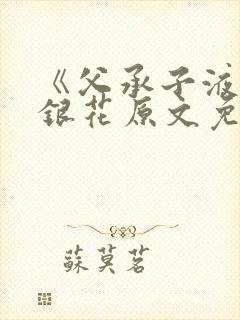 《父承子液
銀花原文免
蘇莫茗